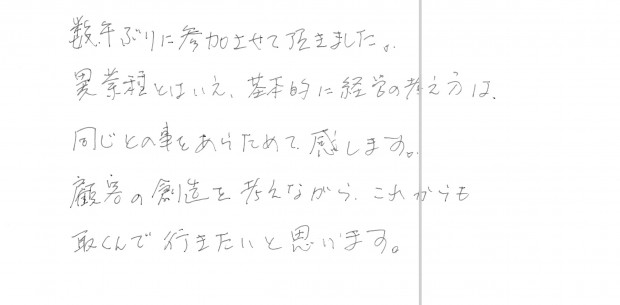 数年ぶりに参加させて頂きました。
異業種とはいえ、基本的に経営の考え方は、
同じとの事をあらためて感じます。
顧客の創造を考えながら、これからも
取くんで行きたいと思います。